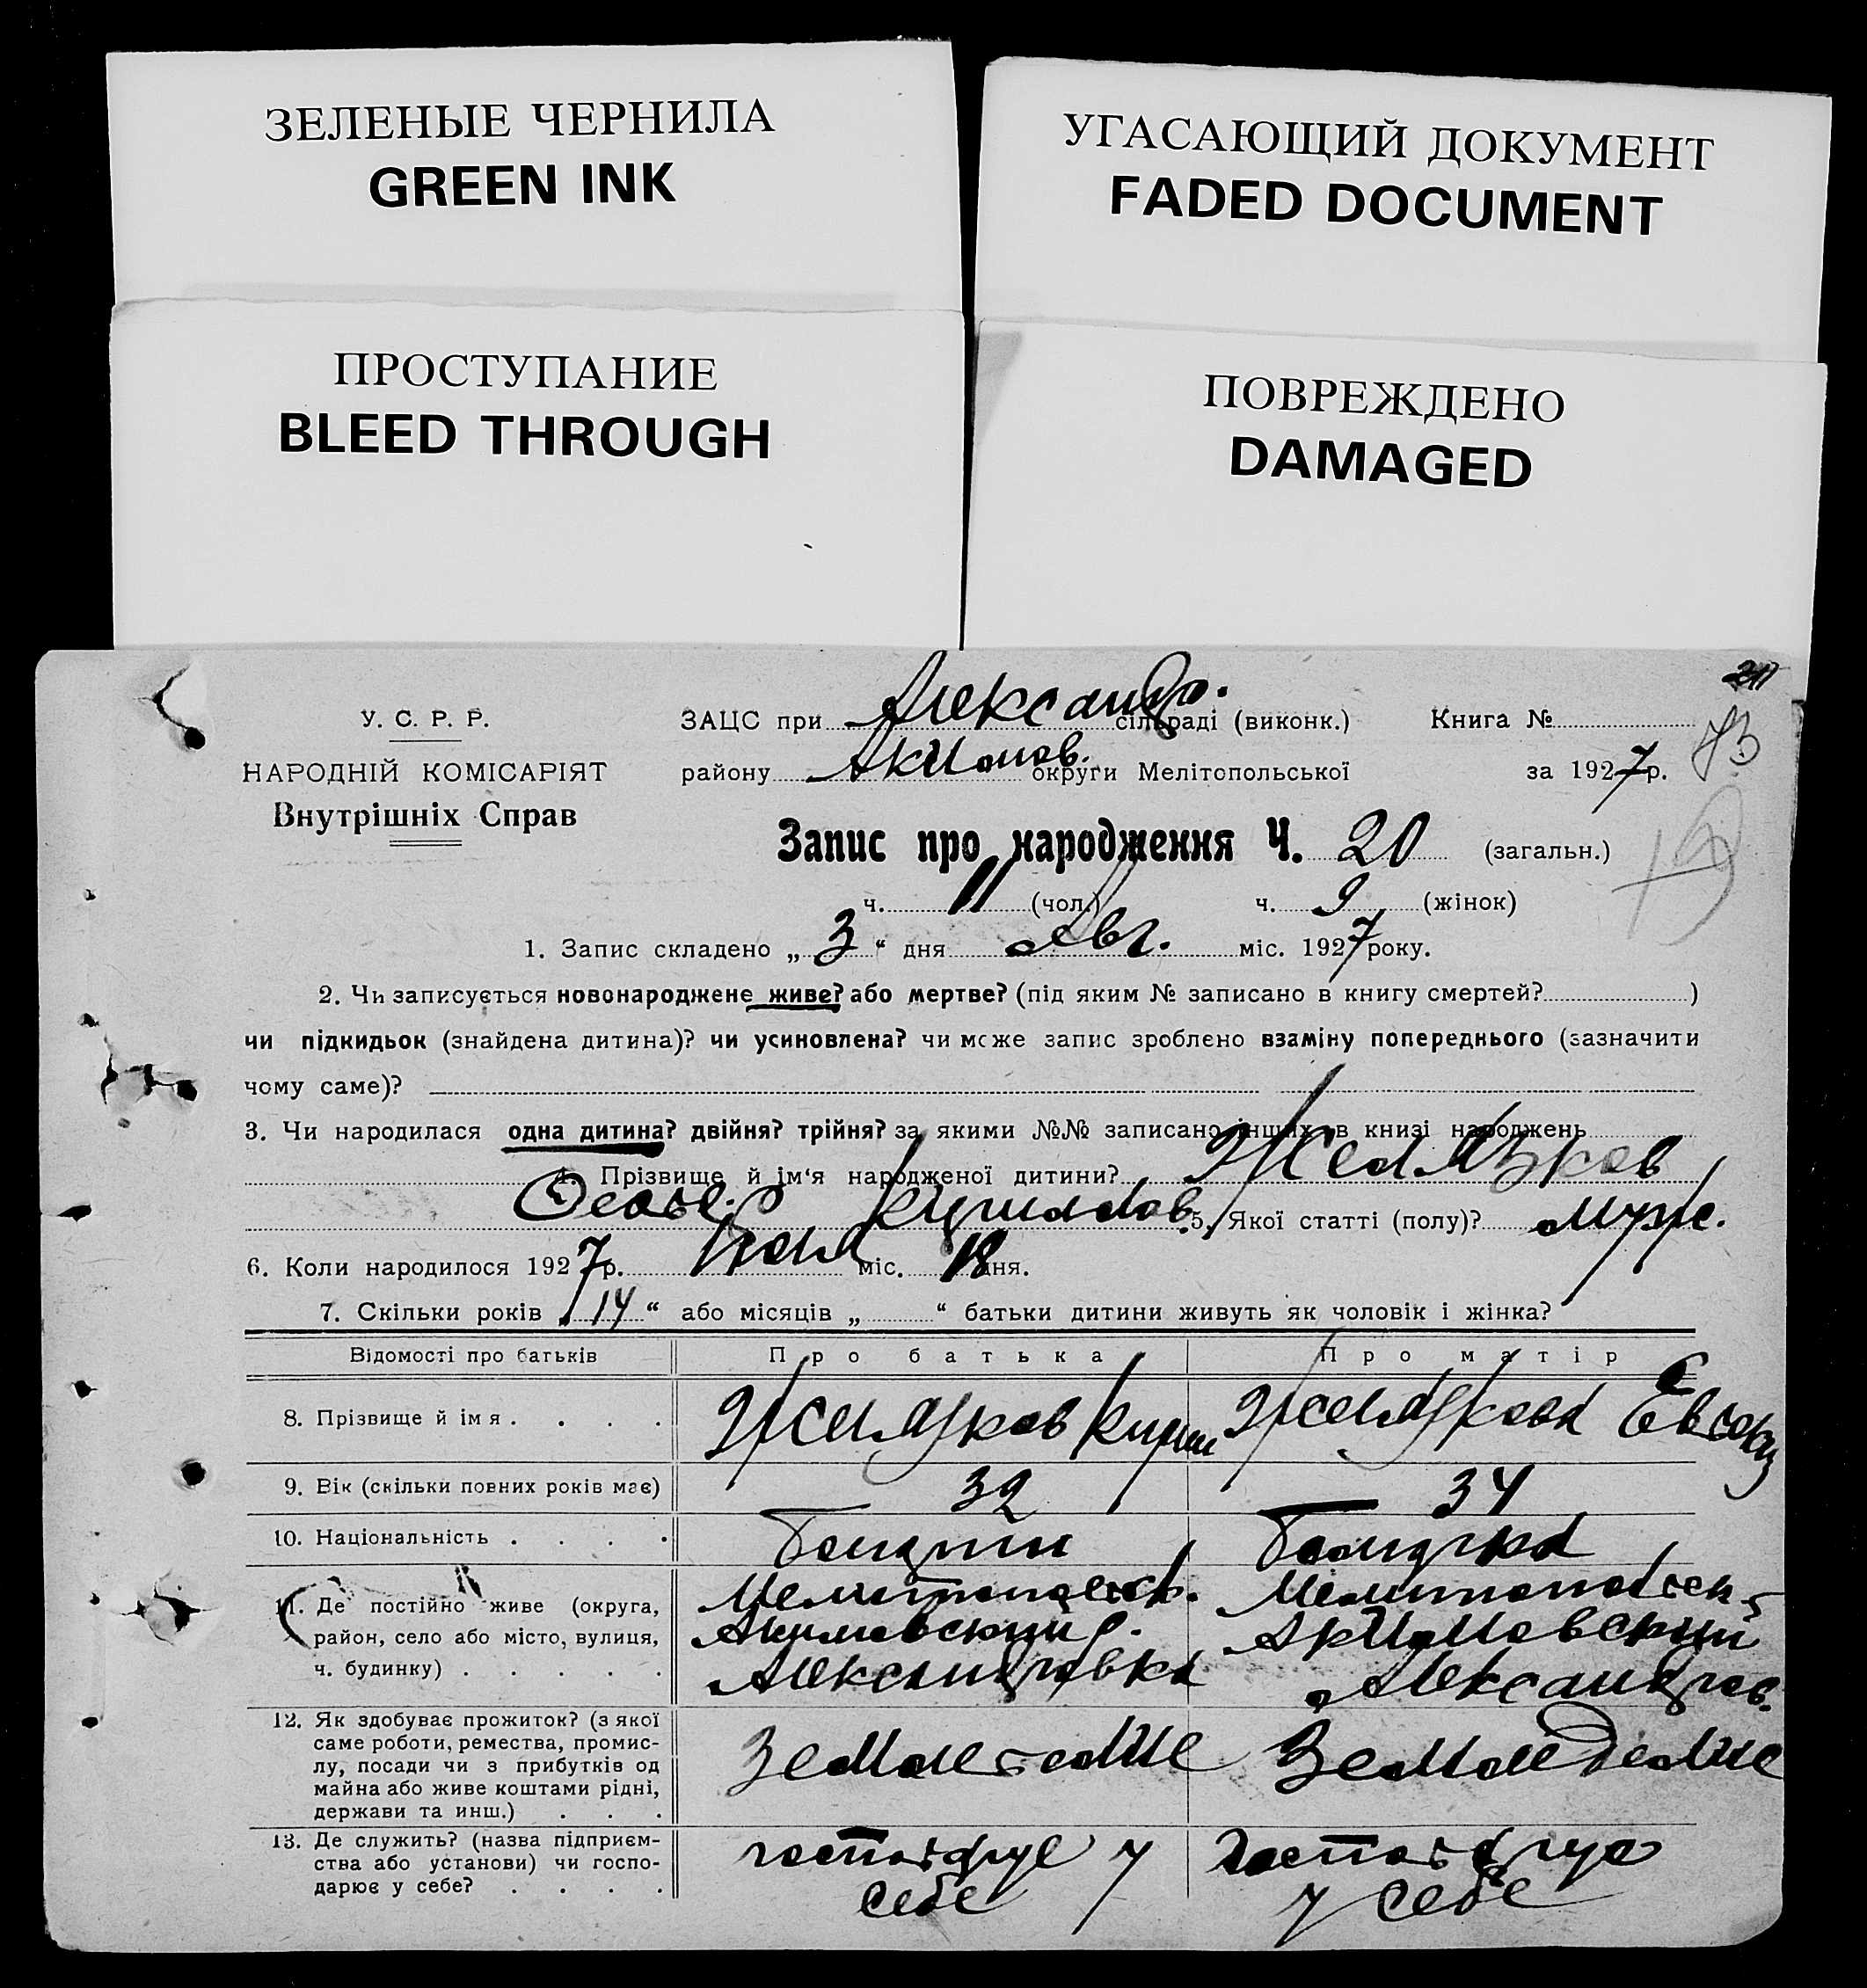 ЗЕЛЕНЫЕ ЧЕРНИЛА
GREEN INK
УГАСАЮЩИЙ ДОКУМЕНТ
FADED DOCUMENT
ПРОСТУПАНИЕ
BLEED THROUGH
ПОВРЕЖДЕНО
DAMAGED
У. С. Р. Р.
НАРОДНІЙ КОМІСАРІЯТ
Внутрішніх Справ
ЗАЦС при Александр. сільраді (виконк.) Книга №
району Акимов. округи Мелітопольської за 1927 р.
73
Запис про народження Ч. 20 (загальн.)
ч. 11 (чол.) ч. 9 (жінок)
1. Запис складено „ 3 “ дня Авг. міс. 1927 року.
2. Чи записується новонароджене живе? або мертве? (під яким № записано в книгу смертей? )
чи підкидьок (знайдена дитина)? чи усиновлена? чи може запис зроблено взаміну попереднього (зазначити
чому саме)?
3. Чи народилася одна дитина? двійня? трійня? за якими №№ записано інших в книзі народжень
4. Прізвище й ім'я народженої дитини?
Кирилов. 5. Якої статті (полу)? муж.
6. Коли народилося 1927 р. міс. 18 дня.
7. Скільки років „ 14 “ або місяців „ “ батьки дитини живуть як чоловік і жінка?
Відомості про батьків Про батька Про матір
8. Прізвище й імя . . . . Кирил
9. Вік (скільки повних років має) 32 34
10. Національність . . . .
11. Де постійно живе (округа, Мелитопольск. Мелитопольск.
район, село або місто, вулиця, Акимовский р. Акимовский
ч. будинку) . . . . . Александровка Александров.
12. Як здобуває прожиток? (з якої
саме роботи, ремества, промис-
лу, посади чи з прибутків од Земледелие Земледелие
майна або живе коштами рідні,
держави та инш.) . . .
13. Де служить? (назва підприєм- господарує у
ства або установи) чи госпо- себе у себе
дарює у себе? . . . .